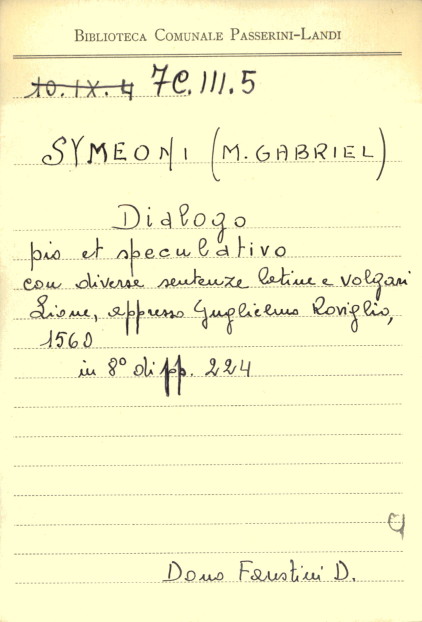 BIBLIOTECA COMUNALE PASSERINI-LANDI
10.IX.4 7C.III.5
SYMEONI (M. GABRIEL)
Dialogo
pio et speculativo
con diverse sentenze latine e volgari
Lione, appresso Guglielmo Roviglio,
1560
in 8° di pp. 224
Dono Faustini D.